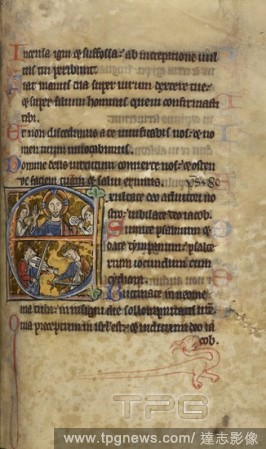 Incensa igni et suffossa: ab increpatione uul
tus tui peribunt.
iat manus tua super uirum dextere tue:
et super filium hominis quem confirmasti
tibi.
Et non discedimus a te uiuificabis nos: et no
men tuum inuocabimus.
Domine deus uirtutum conuerte nos: et osten
de faciem tuam et salui erimus. ps 80
Exultate deo adiutori no
stro: iubilate deo iacob.
Sumite psalmum et
date tympanum: psalte
rium iocundum cum
cythara.
Buccinate in neome
nia tuba: in insigni die sollempnitatis uestre.
Quia preceptum in isrl est: et iudicium deo ia
cob.
TPG
www.tpgnews.com / 達志影像